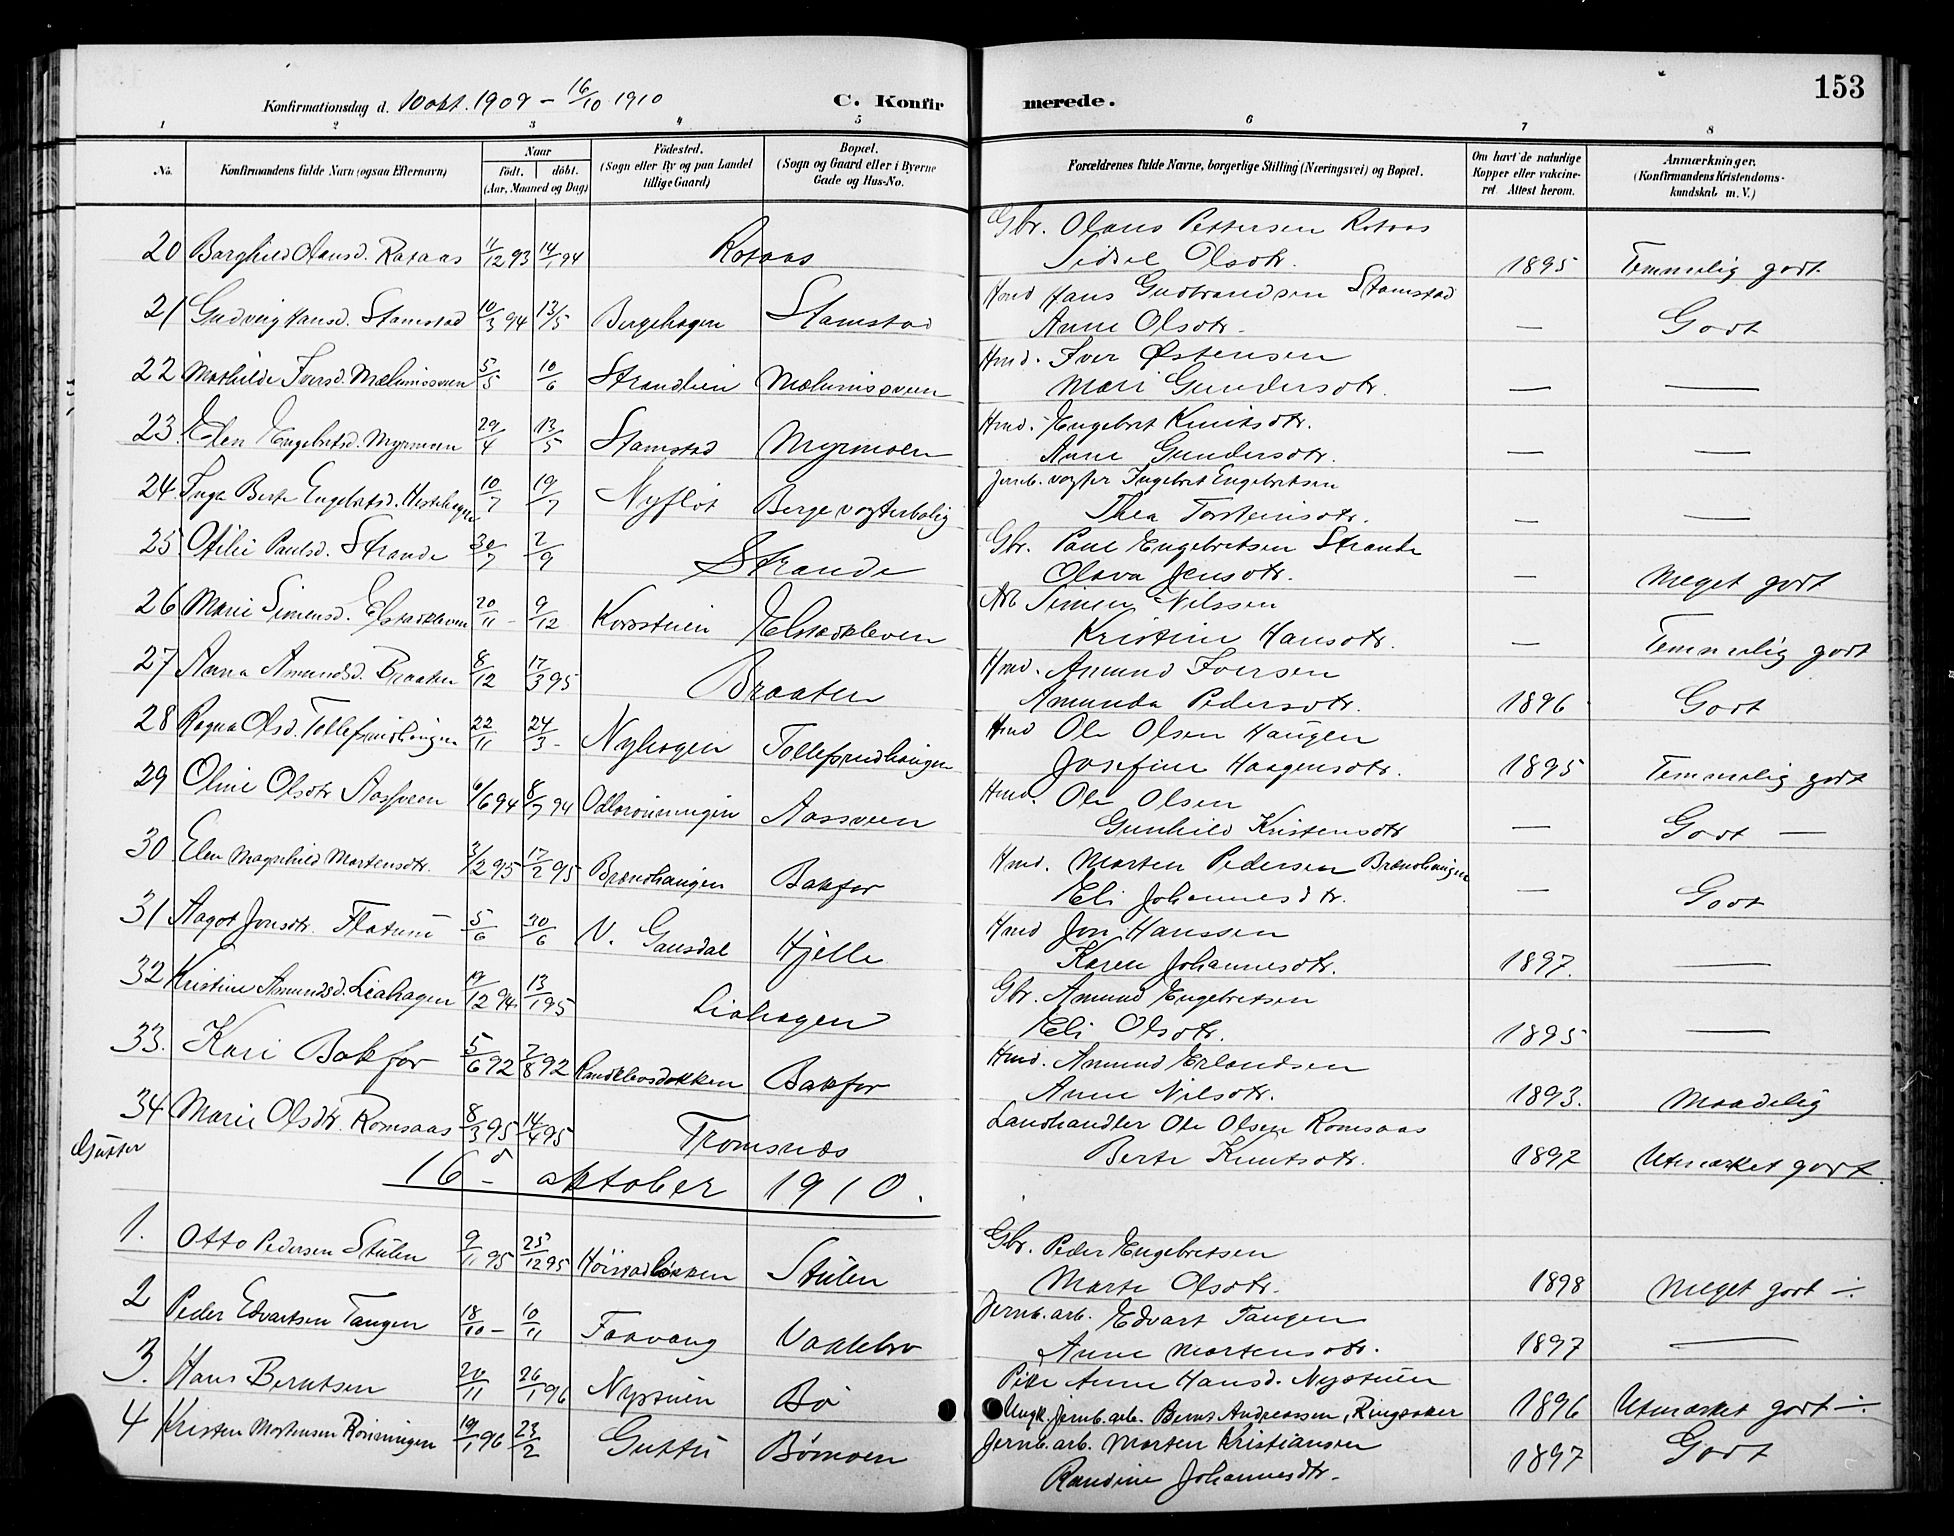 153
Konfirmationsdag d. 10 okt. 1909 – 16/10 1910 C. Konfirmerede.
1 2 3 4 5 6 7 8
No. Konfirmandens fulde Navn (ogsaa Efternavn) Naar født. døbt. (Aar, Maaned og Dag) Fødested. (Sogn eller By og paa Landet tillige Gaard) Bopæl. (Sogn og Gaard eller i Byerne Gade og Hus-No. Forældrenes fulde Navne, borgerlige Stilling (Næringsvei) og Bopæl. Om havt de naturlige Kopper eller vakcineret Attest herom. Anmærkninger. (Konfirmandens Kristendomskundskab m. V.)
Gbr. Olaus Pettersen Rotaas
20 Borghild Olausd. Rotaas 11/12 93 14/1 94 Rotaas Sidsel Olsdtr. 1895 Temmelig godt
Hmd Hans Gudbrandsen Stamstad
21 Gudveig Hansd. Stamstad 10/3 94 13/5 Bergehagen Stamstad Anne Olsdtr. — Godt
Hmd. Iver Østensen
22 Mathilde Iversd. Mælumssveen 5/5 10/6 Strandlien Mælumssveen Mari Gundersdtr. — —
Hmd. Engebret Knutsdtr.
23 Elen Engebretsd. Myrmoen 29/4 13/5 Stamstad Myrmoen Anne Gundersdtr. — —
Jernb. vogter Ingebret Engebretsen
24 Inga Berte Engebretsd. Hestehagen 10/7 19/7 Nyflot Berge vogterbolig Thea Torsteinsdtr. — —
Gbr. Paul Engebretsen Strande
25 Otilie Paulsd. Strande 30/7 2/9 Strande Olava Jensdtr. — Meget godt
Arb Simen Nilssen
26 Marie Simensd. Elstadkleven 20/11 – 9/12 Korsstuen Elstadkleven Kristine Hansdtr. — Temmelig godt
Hmd. Amund Iversen
27 Anna Amundsd. Braaten 8/12 17/3 95 Braaten Amunda Pedersdtr. 1896 Godt
Hmd Ole Olsen Haugen
28 Ragna Olsd. Tollefsrudhaugen 22/11 24/3 – Nyhagen Tollefsrudhaugen Josefine Haagensdtr. 1895 Temmelig godt
Hmd. Ole Olsen
29 Oline Olsdtr Aassveen 6/6 94 8/7 94 Aassveen Gunhild Kristensdtr — Godt —
Hmd. Morten Pedersen Brændhaugen
30 Elen Magnhild Mortensdtr. 3/2 95 17/2 95 Brændhaugen Bakfor Eli Johannesdtr. — Godt
Hmd Jon Hanssen
31 Aagot Jonsdtr. Flatum 5/6 30/6 N. Gausdal Hjelle Karen Johannesdtr. 1897. —
Gbr. Amund Engebretsen
32 Kristine Amundsd. Liahagen 17/12 94 13/1 95 Liahagen Eli Olsdtr. 1895 —
Hmd. Amund Erlandsen
33. Kari Bakfor 5/6 92 7/8 92 Randklevsdokken Bakfor Anne Nilsdtr. 1893. Maadelig
Landhandler Ole Olsen Romsaas
34 Marie Olsdtr. Romsaas 8/3 95 14/4 95 Tromsnæs Berte Knutsdtr. 1897 Utmærket godt.
Gutter
16d – oktober 1910.
Gbr. Peder Engebretsen
1. Otto Pedersen Stulen 9/11 95 25/12 95 Høistadløkken Stulen Marte Olsdtr. 1898 Meget godt –.
Jernb. arb. Edvart Tangen
2 Peder Edvartsen Tangen 18/10 – 10/11 Faavang Vaalebro Anne Mortensdtr. 1897 —
Pike Anne Hansd. Nystuen
3. Hans Berntsen 20/11 26/1 96 Nystuen Bø Ungk. Jernb. arb. Bernt Andreassen, Ringsaker 1896 Utmærket godt –.
Jernb. arb. Morten Kristiansen
4 Kristen Mortensen Rønningen 19/1 96 23/2 Guttu Bømoen Randine Johannesdtr. 1897 Godt